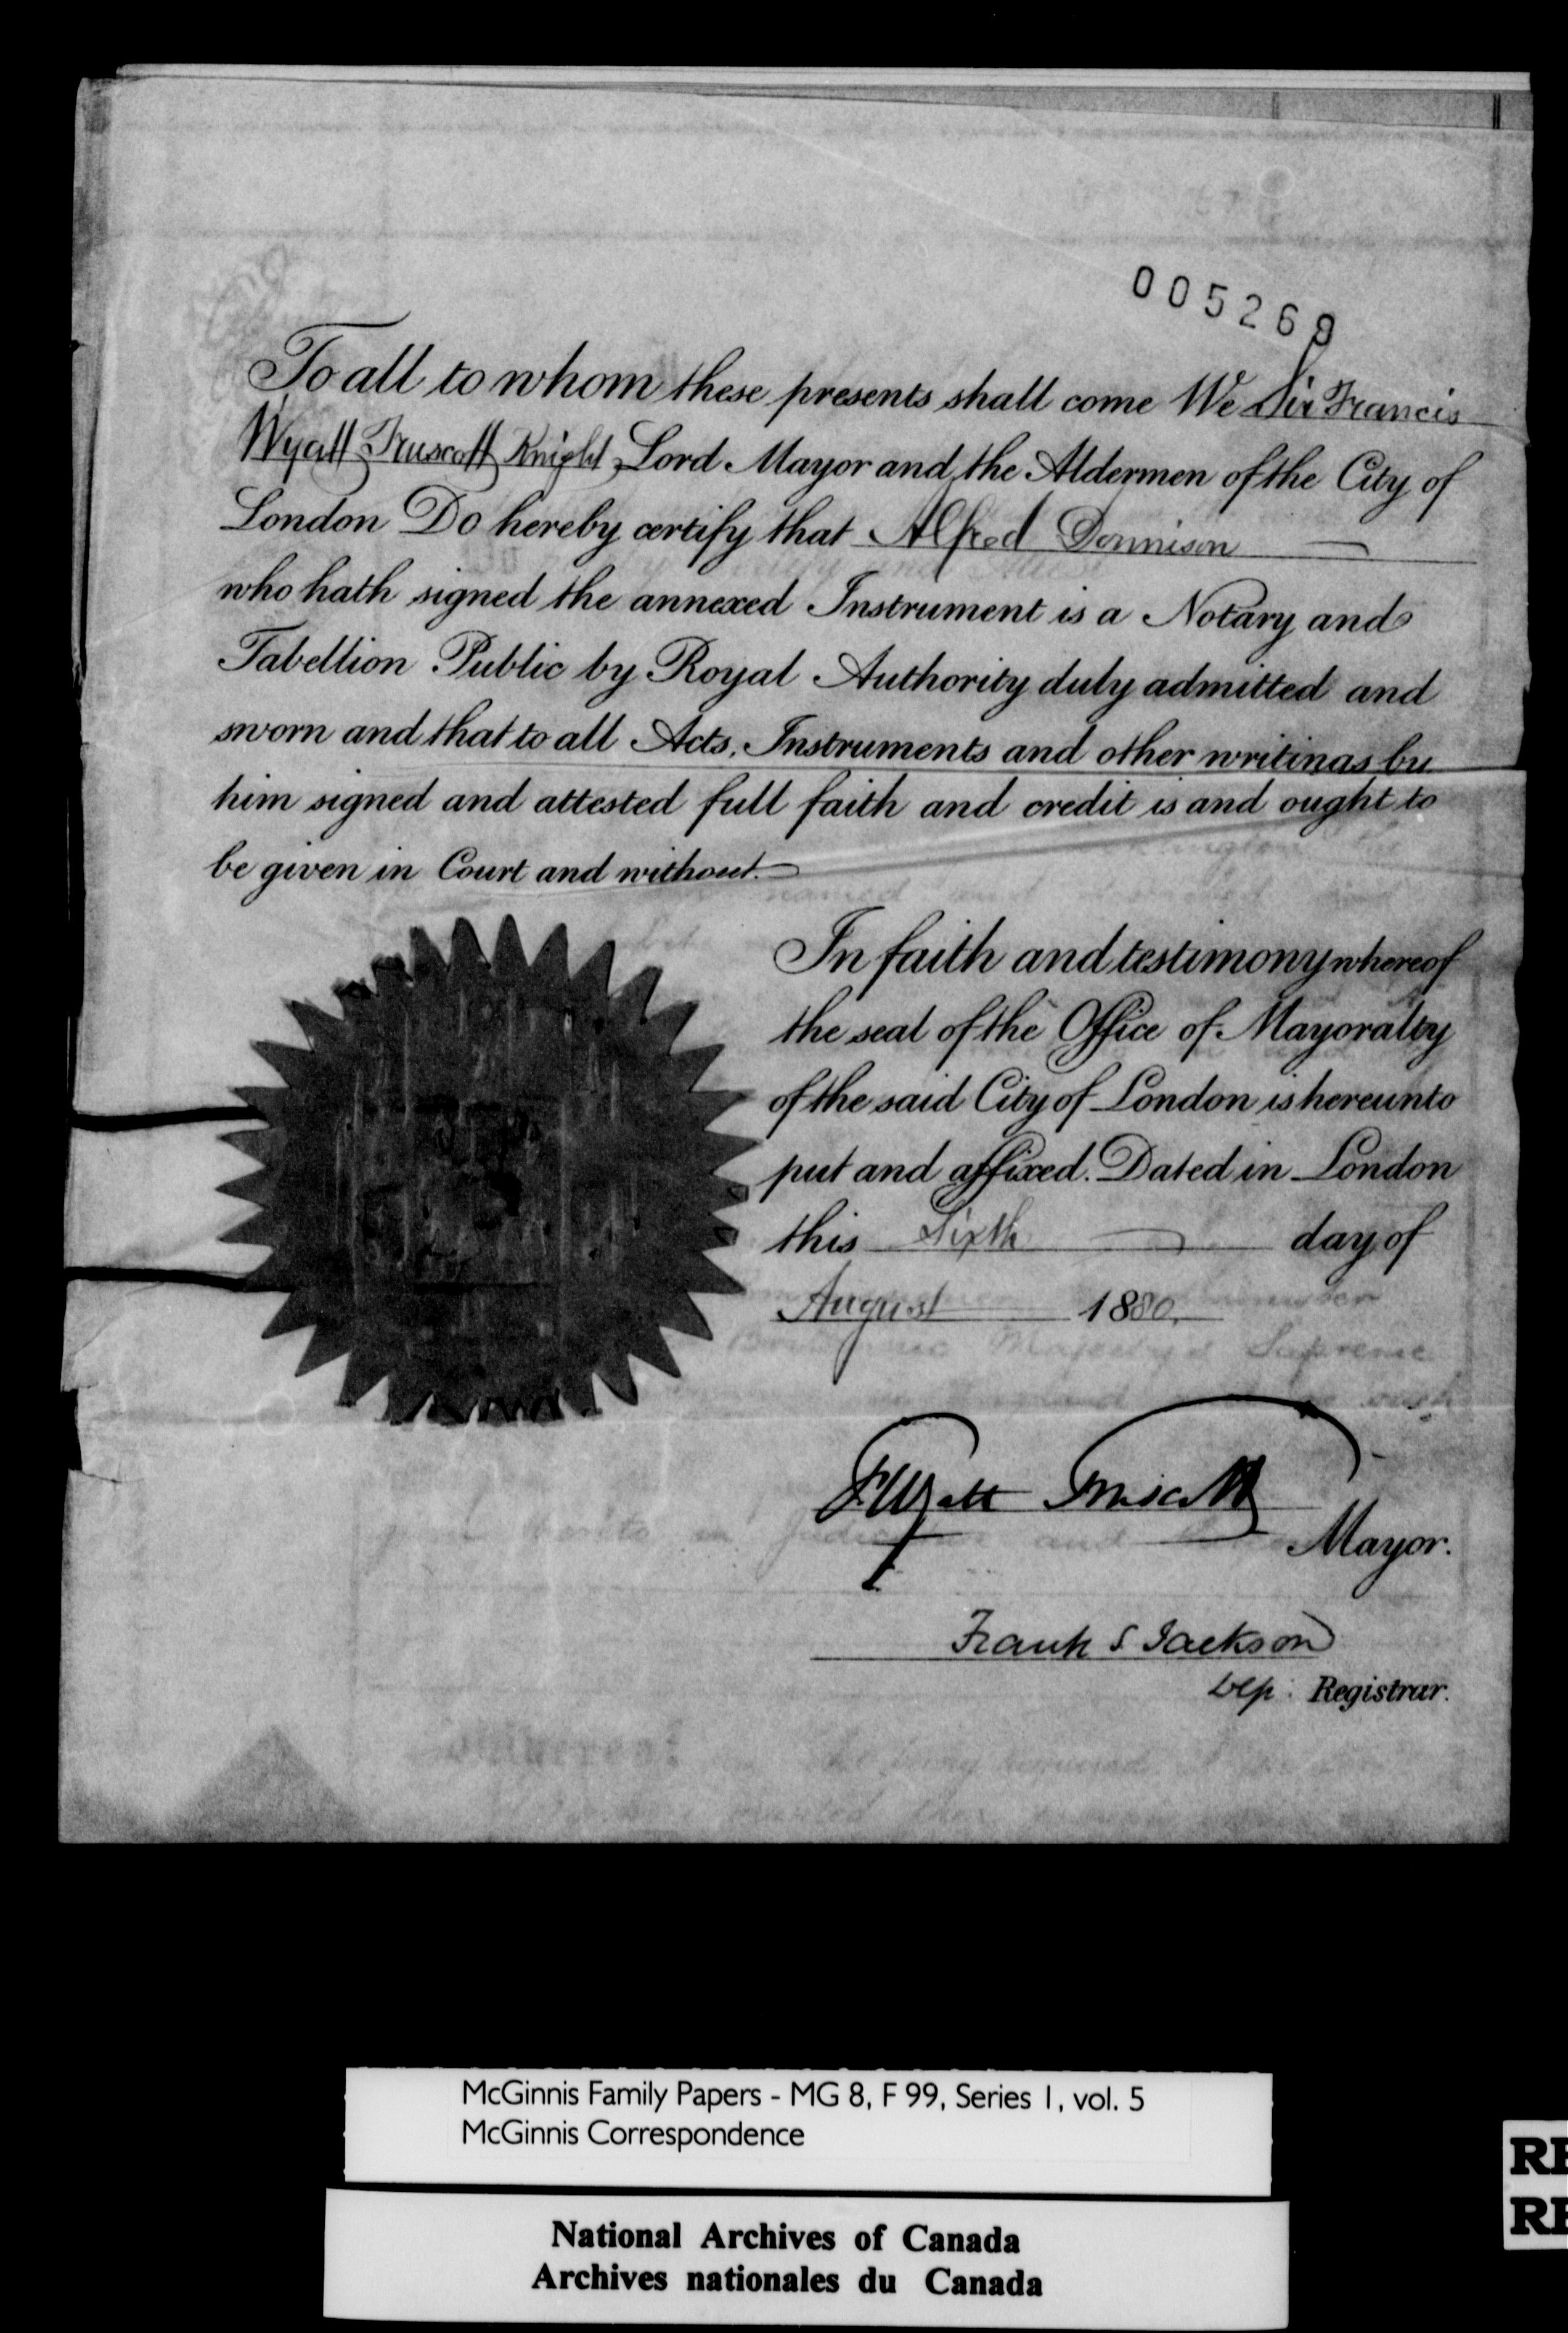 005269
To all to whom these presents shall come We Sir Francis
Wyatt Truscott Knight Lord Mayor and the Aldermen of the City of
London Do hereby certify that Alfred Donnison
who hath signed the annexed Instrument is a Notary and
Tabellion Public by Royal Authority duly admitted and
sworn and that to all Acts, Instruments and other writings by
him signed and attested full faith and credit is and ought to
be given in Court and without.
In faith and testimony whereof
the seal of the Office of Mayoralty
of the said City of London is hereunto
put and affixed. Dated in London
this Sixth day of
August 1880.
F Wyatt Truscott
Mayor.
Frank S Jackson
Dep: Registrar.
McGinnis Family Papers - MG 8, F 99, Series 1, vol. 5
McGinnis Correspondence
National Archives of Canada
Archives nationales du Canada